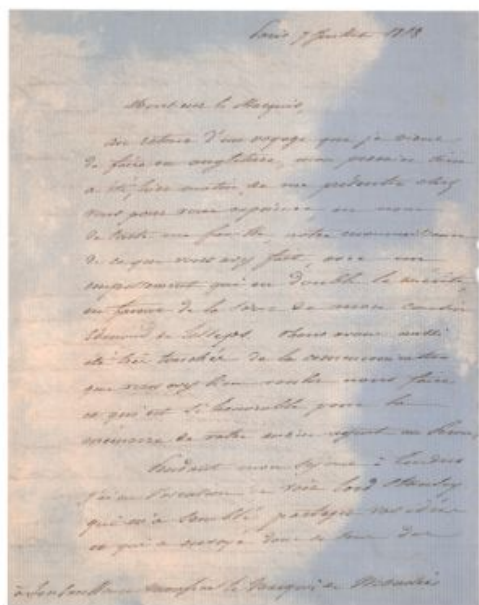 Paris 7 Juillet 18
Monsieur le Marquis,
au retour d'un voyage que je viens
de faire en angleterre, mon premier
a été, hier matin, de me présenter chez
vous pour vous exprimer, au nom
de toute ma famille, notre reconnaissance
de ce que vous avez fait, avec un
empressement qui en double le mérite,
en faveur de la de mon cousin
Edmond de Lesseps. Nous avons aussi
été très touchés de la communication
que vous avez bien voulu nous faire
ce qui est si honorable pour la
mémoire de votre ancien agent au
Pendant mon séjour à Londres
j'ai eu l'occasion de voir Lord Stanley
qui m'a semblé partager vos idées
ce qui a
Monsieur le Marquis de Moustier